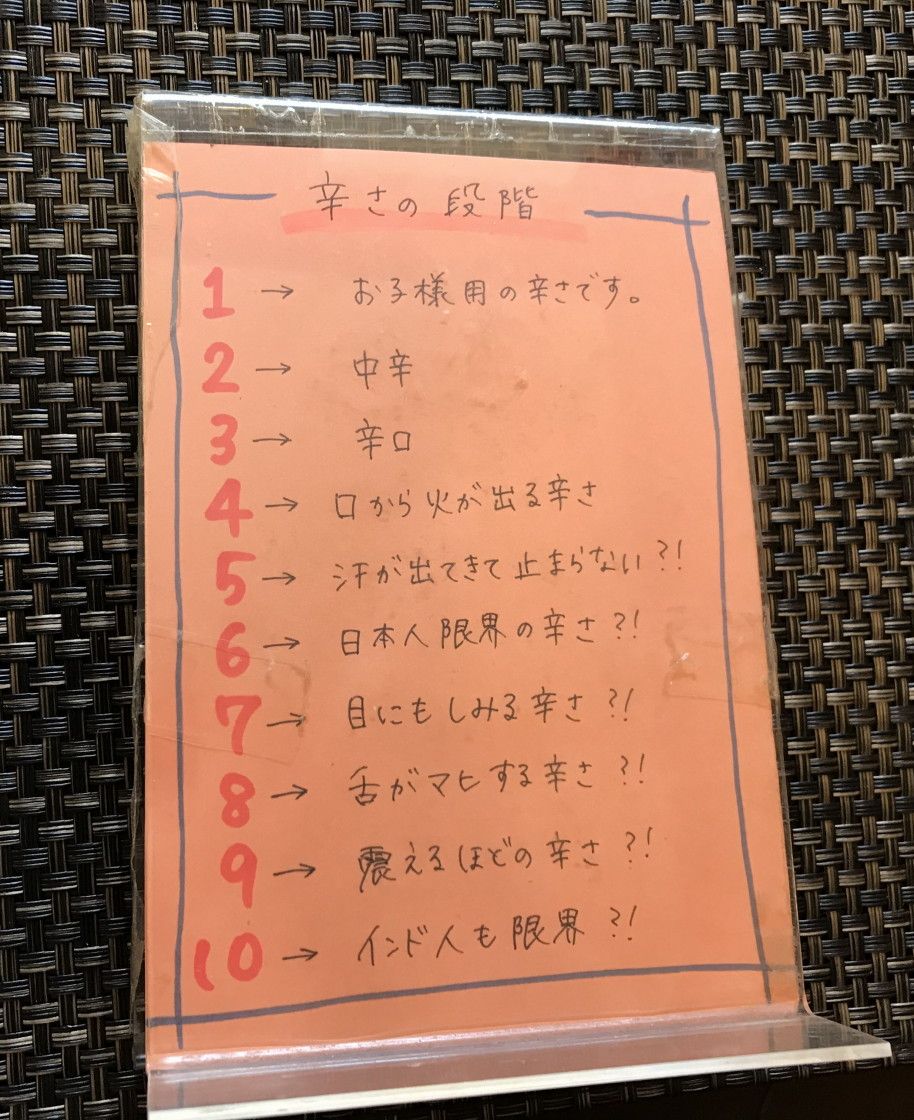 辛さの段階
1 → お子様用の辛さです。
2 → 中辛
3 → 辛口
4 → 口から火が出る辛さ
5 → 汗が出てきて止まらない?!
6 → 日本人限界の辛さ?!
7 → 目にもしみる辛さ?!
8 → 舌がマヒする辛さ?!
9 → 震えるほどの辛さ?!
10 → インド人も限界?!